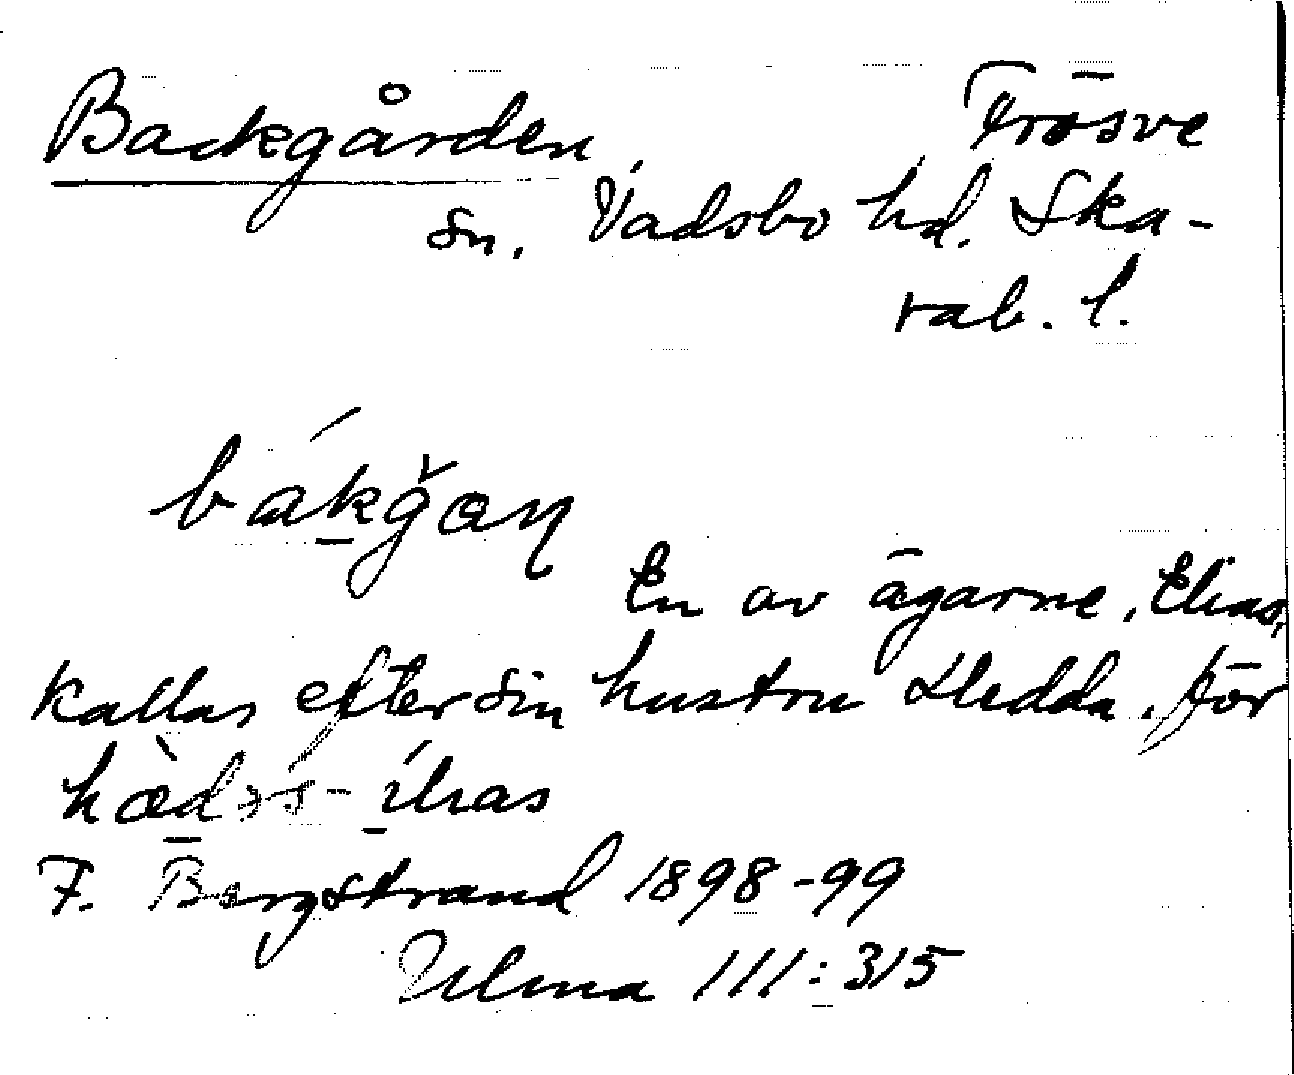 Backgården, Frösve
sn. Vadsbo hd. Ska-
rab. l.
En av ägarne, Elias,
kallas efter sin hustru Hedda, för
F. Bergstrand 1898-99
Ulma 111:315